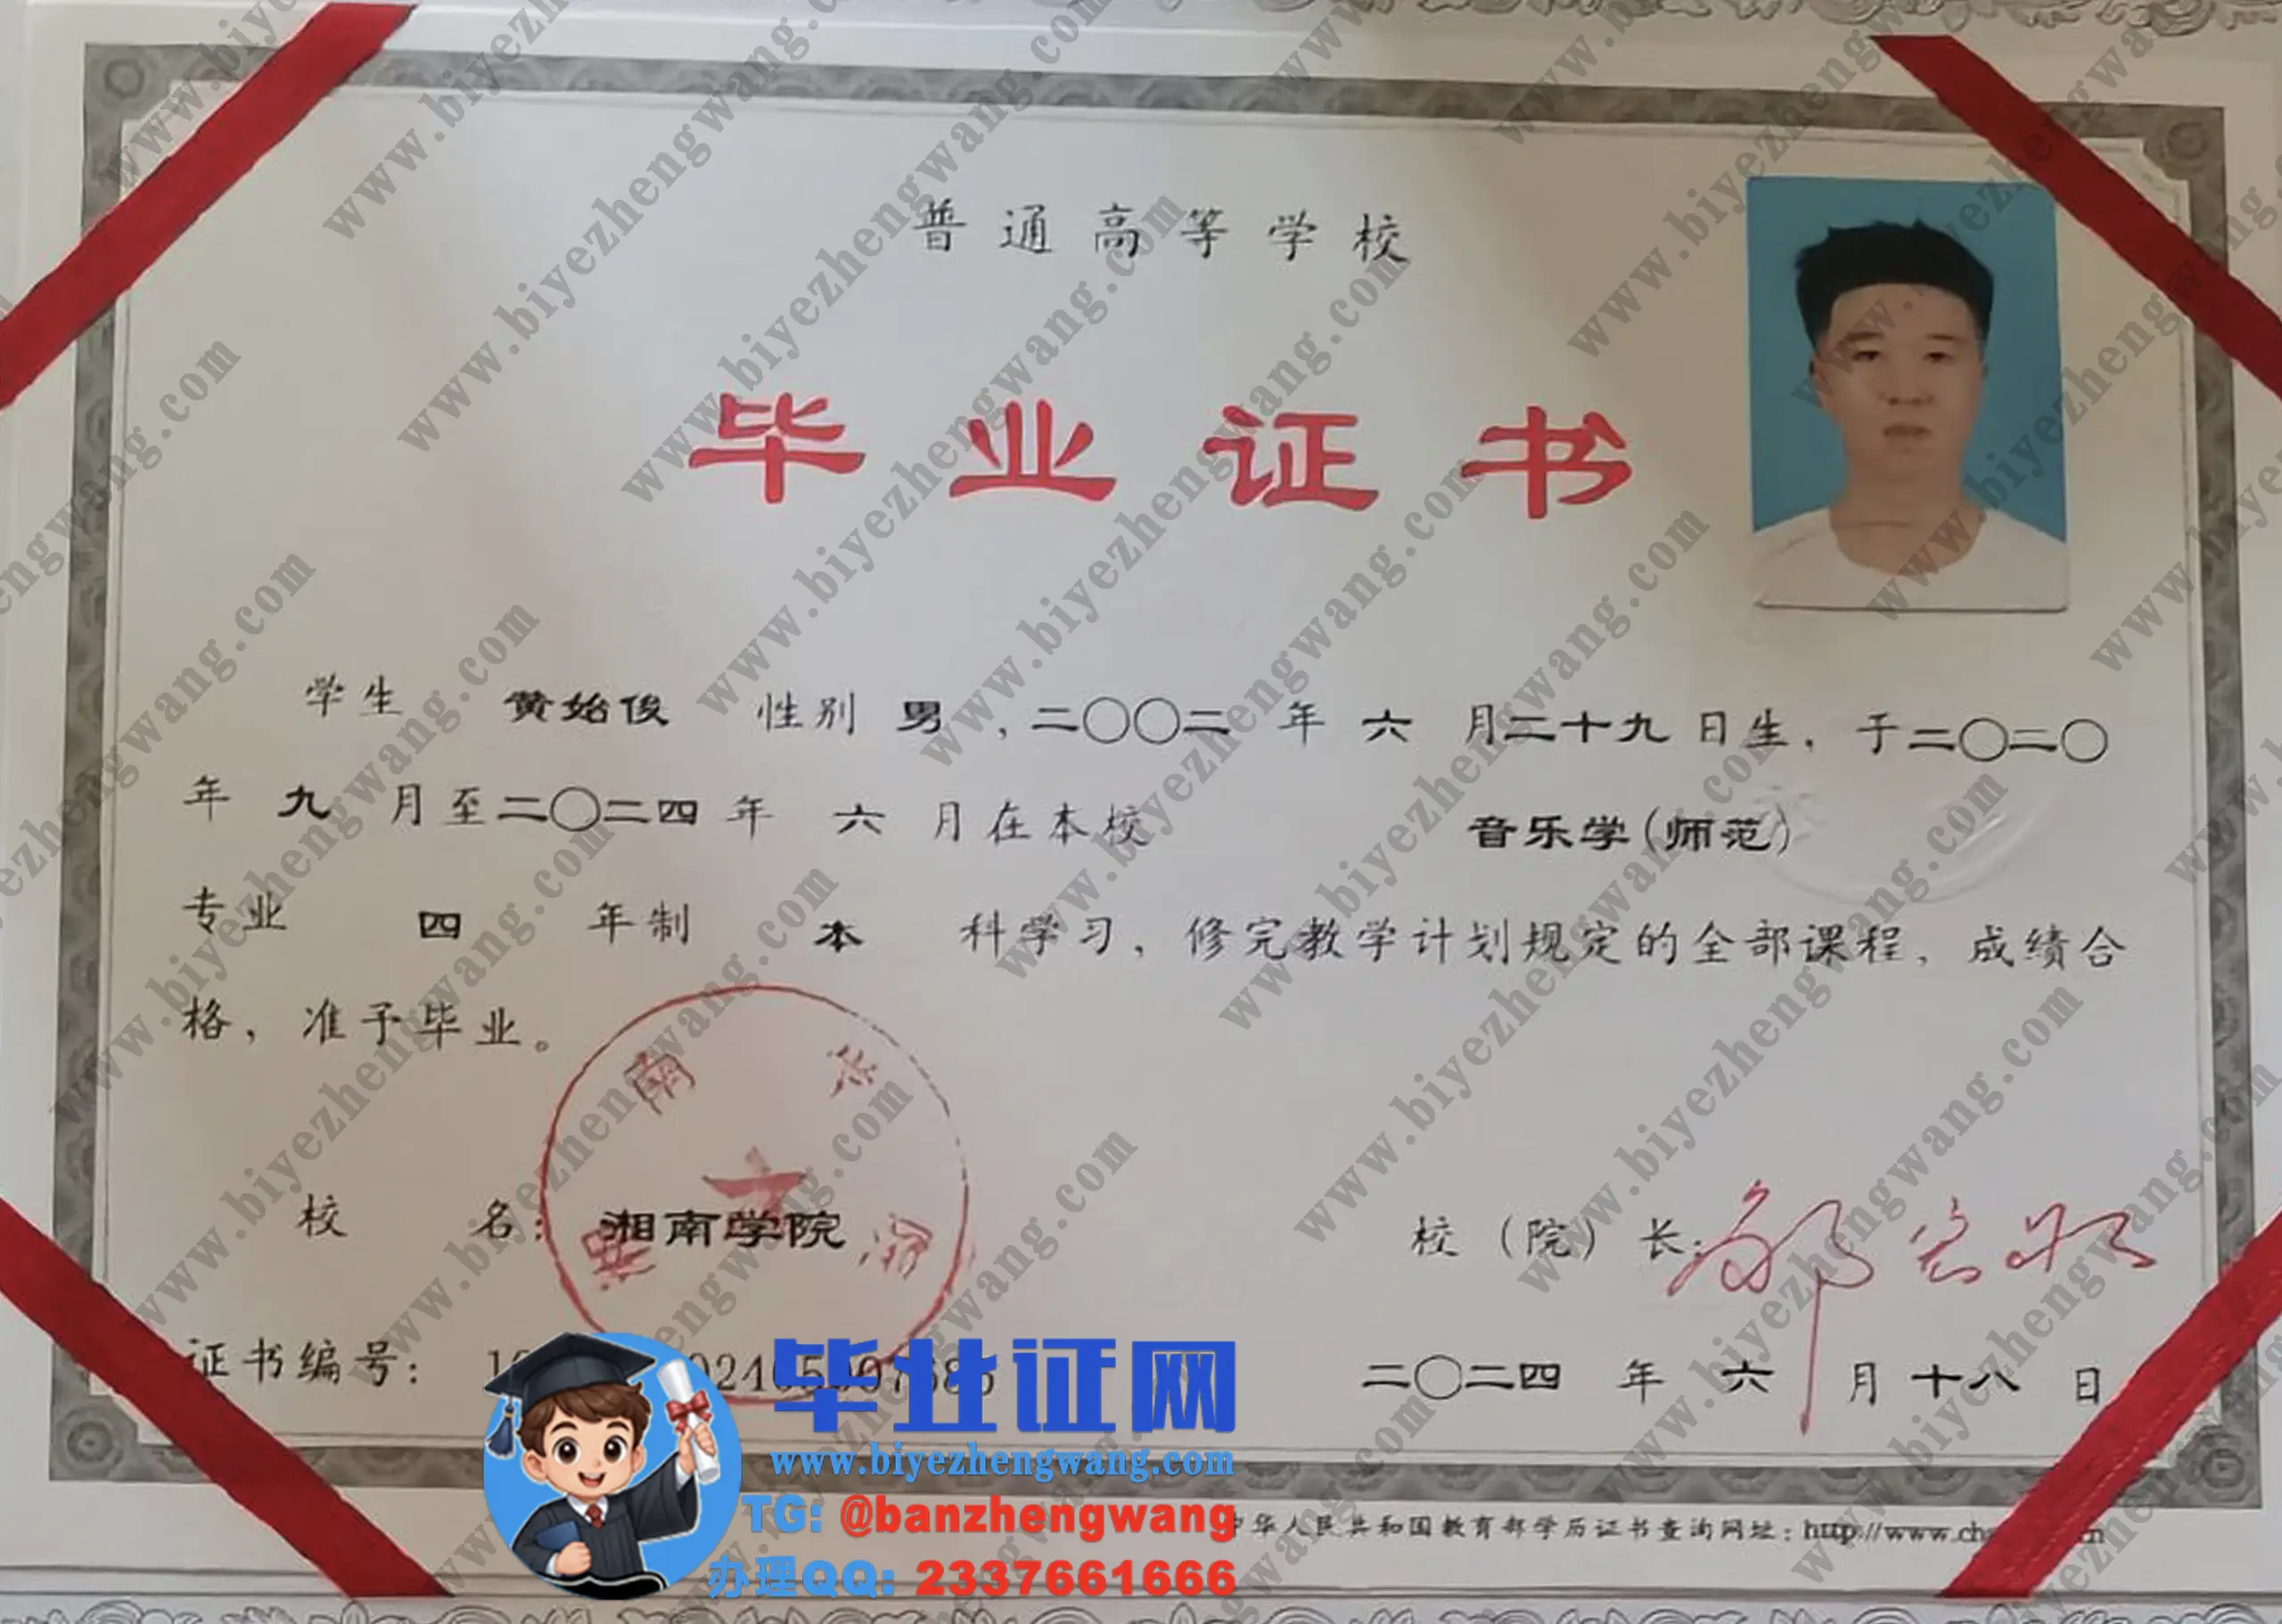 普通高等学校
毕业证书
学生 黄始俊 性别 男,二〇〇二年 六 月二十九日生,于二〇二〇
年 九 月至二〇二四年 六 月在本校 音乐学(师范)
专业 四 年制 本 科学习,修完教学计划规定的全部课程,成绩合
格,准予毕业。
校 名:湘南学院
校(院)长:
证书编号:
二〇二四 年 六 月十八 日
毕业证网
www.biyezhengwang.com
TG: @banzhengwang
办理QQ: 2337661666
中华人民共和国教育部学历证书查询网址:http://www.ch